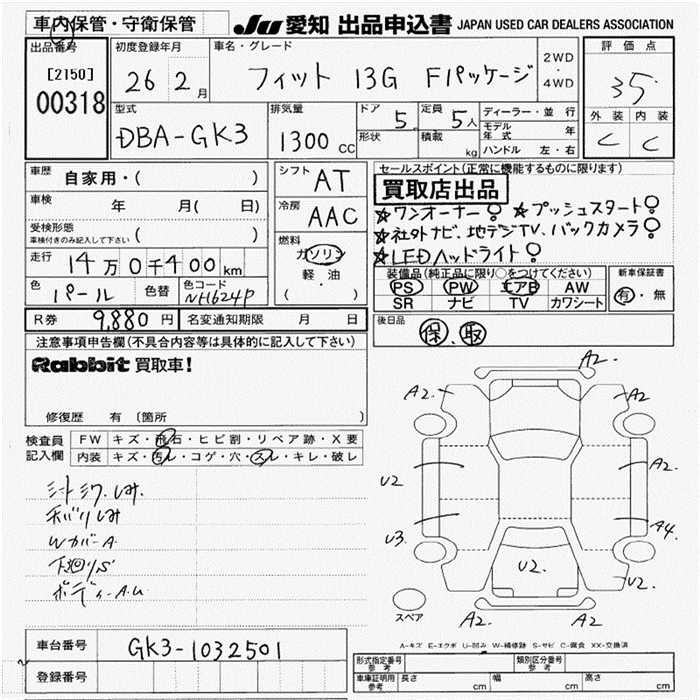 車内保管・守衛保管
JU 愛知 出品申込書 JAPAN USED CAR DEALERS ASSOCIATION
出品番号
[2150]
00318
初度登録年月
26 2月
車名・グレード
フィット 13G Fパッケージ
2WD
・
4WD
評価点
3.5
外装 内装
C C
型式
DBA-GK3
排気量
1300 CC
ドア 5
形状
定員 5人
積載 kg
ディーラー・並行
モデル年式 年
ハンドル 左・右
車歴 自家用・( )
車検 年 月( 日)
受検形態
車検付きのみ記入して下さい ( )
走行 14万0千400km
色 パール 色替
色コード NH624P
シフト AT
冷房 AAC
燃料
ガソリン
軽・油
( )
セールスポイント(正常に機能するものに限ります)
買取店出品
☆ワンオーナー! ☆プッシュスタート!
☆社外ナビ、地デジTV、バックカメラ!
☆LEDヘッドライト!
装備品(純正品に限り○をつけてください)
PS PW エアB AW
SR ナビ TV カワシート
新車保証書
有・無
R券 9,880円 名変通知期限 月 日
後日品
保、取
注意事項申告欄(不具合内容等は具体的に記入して下さい)
Rabbit 買取車!
修復歴 有 〔箇所 〕
検査員
記入欄
FW キズ・飛石・ヒビ割・リペア跡・X要
内装 キズ・汚レ・コゲ・穴・スレ・キレ・破レ
シートシワ.しみ.
内バリしみ
Wカバー A
下廻りS
ボディー A.U
A2.
A2.
A2
U2
A2.
U3.
A4.
U2.
U2.
A2.
A2.
スペア
A-キズ E-エクボ U-凹み W-補修跡 S-サビ C-腐食 XX-交換済
車台番号 GK3-1032501
登録番号
形式指定番号
参考
類別区分番号
参考
車庫証明用
参考
長さ cm 幅 cm 高さ cm